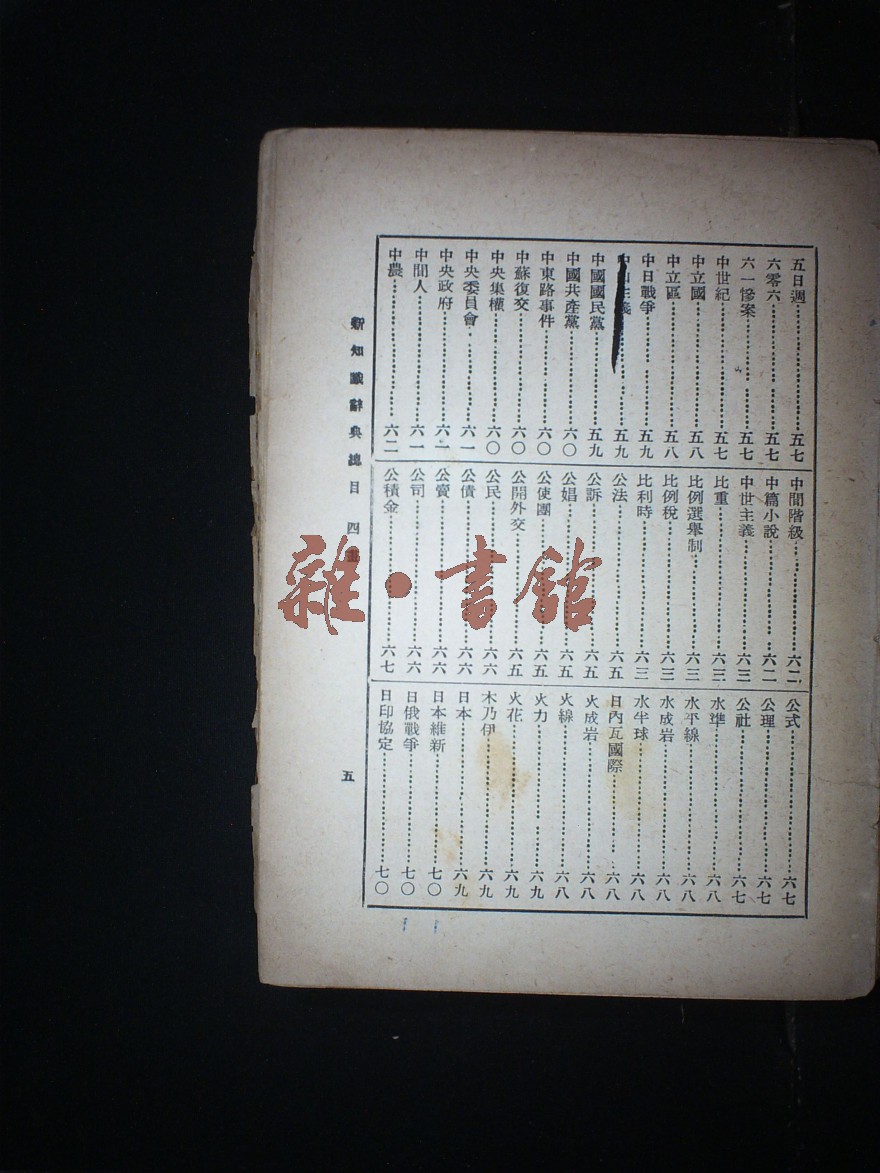 五日週……五七
六零六……五七
六一慘案……五七
中世紀……五七
中立國……五八
中立區……五八
中日戰爭……五九
中山主義……五九
中國國民黨……五九
中國共產黨……六〇
中東路事件……六〇
中蘇復交……六〇
中央集權……六〇
中央委員會……六一
中央政府……六一
中間人……六一
中農……六二
中間階級……六二
中篇小說……六二
中世主義……六三
比重……六三
比例選舉制……六三
比例稅……六三
比利時……六三
公法……六五
公訴……六五
公娼……六五
公使團……六五
公開外交……六五
公民……六六
公債……六六
公賣……六六
公司……六六
公積金……六七
公式……六七
公理……六七
公社……六七
水準……六八
水平線……六八
水成岩……六八
水半球……六八
日內瓦國際……六八
火成岩……六八
火線……六八
火力……六九
火花……六九
木乃伊……六九
日本……六九
日本維新……七〇
日俄戰爭……七〇
日印協定……七〇
新知識辭典總目 四畫
五
雜·書館